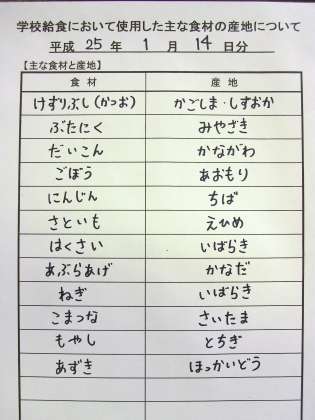 学校給食において使用した主な食材の産地について
平成 25 年 1 月 14 日分
【主な食材と産地】
食材 産地
けずりぶし(かつお) かごしま・しずおか
ぶたにく みやざき
だいこん かながわ
ごぼう あおもり
にんじん ちば
さといも えひめ
はくさい いばらき
あぶらあげ かなだ
ねぎ いばらき
こまつな さいたま
もやし とちぎ
あずき ほっかいどう